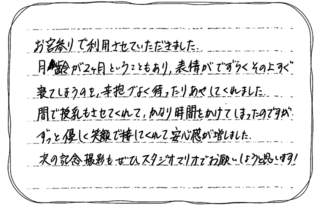 お宮参りで利用させていただきました。
月齢が2ヶ月ということもあり、表情がでずらくそのよすぐ
寝てしまうのを、辛抱づよく待ったりあやしてくれました。
間で授乳もさせてくれて、かなり時間をかけてしまったのですが
ずっと優しく笑顔で接してくれて安心感が増しました。
次の記念撮影もぜひスタジオマリオでお願いしようと思います!